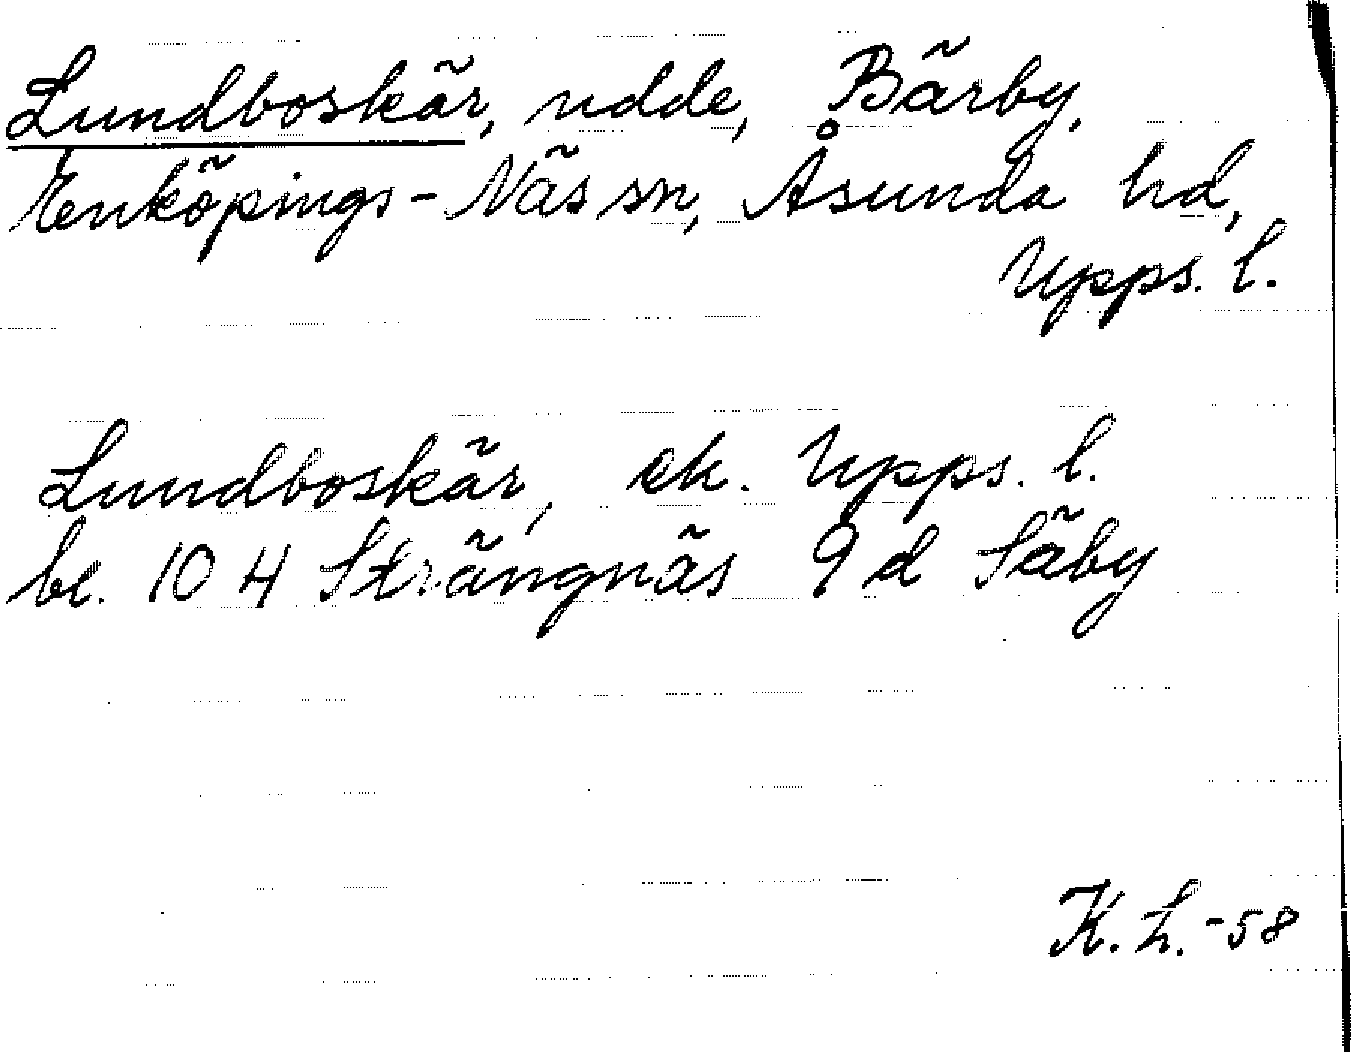 Lundboskär, udde, Bärby,
Enköpings-Näs sn, Åsunda hd,
Upps. l.
Lundboskär, ek. Upps. l.
bl. 10 H Strängnäs 9 d Säby
K. L. -58